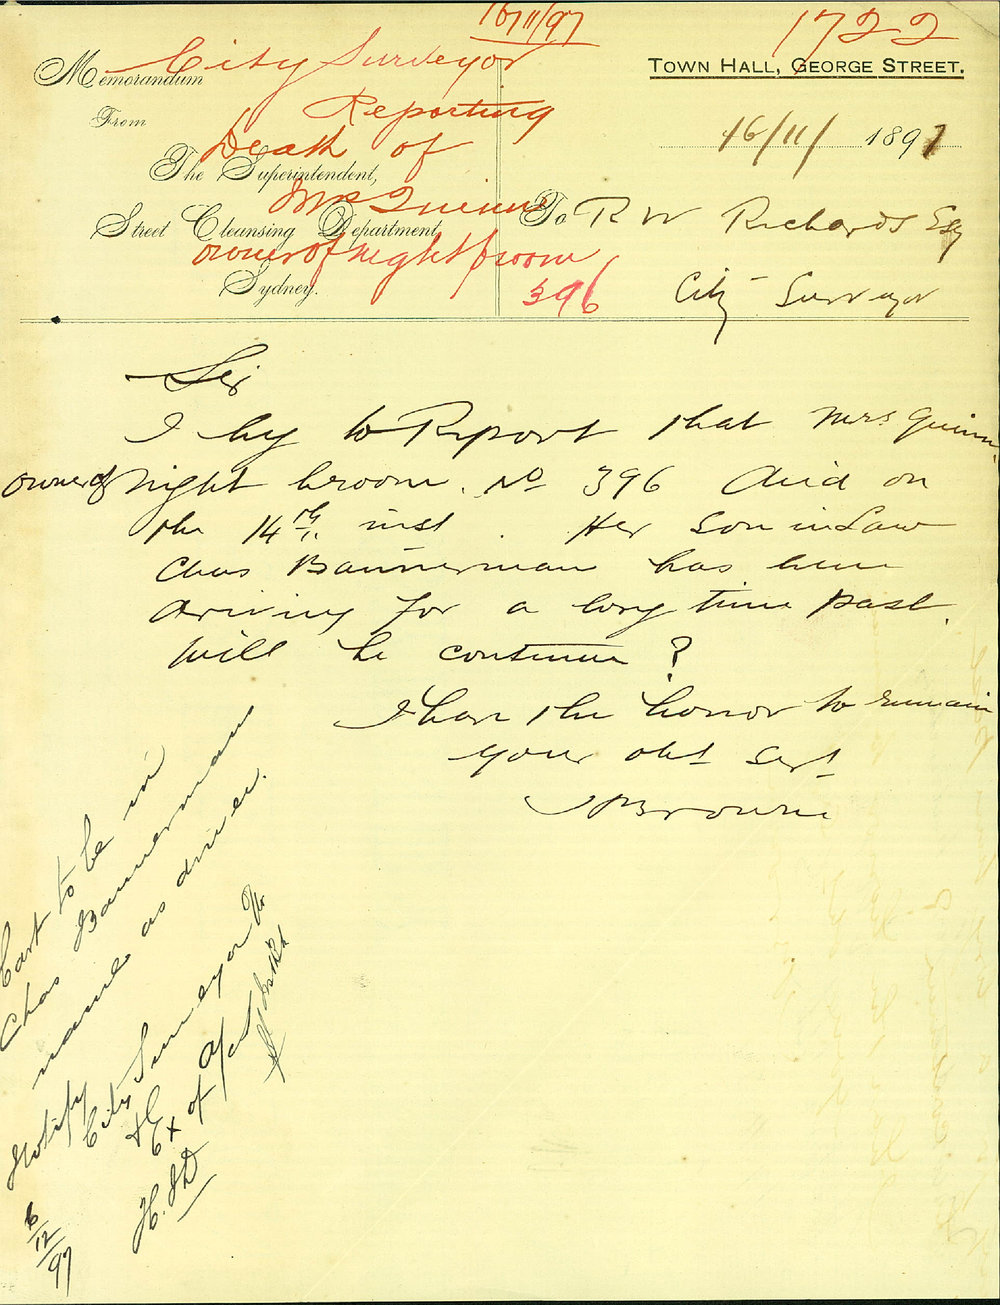 16/11/97
1722
City Surveyor
Reporting
Death of
Mrs Quinn
owner of night broom
396
Memorandum
From
The Superintendent,
Street Cleansing Department,
Sydney.
TOWN HALL, GEORGE STREET.
16/11/ 1897
To R W Richards Esq
City Surveyor
Sir
I beg to Report that Mrs Quinn
owner of night broom. No 396 died on
the 14th inst. Her Son in Law
Chas Bannerman has been
driving for a long time past.
Will he continue?
I have the honor to remain
your obt Sert
J Brown
Cart to be in
Chas Bannerman
name as driver.
Notify City Surveyor
& Ex of a/cs
H.J.D
6/12/97